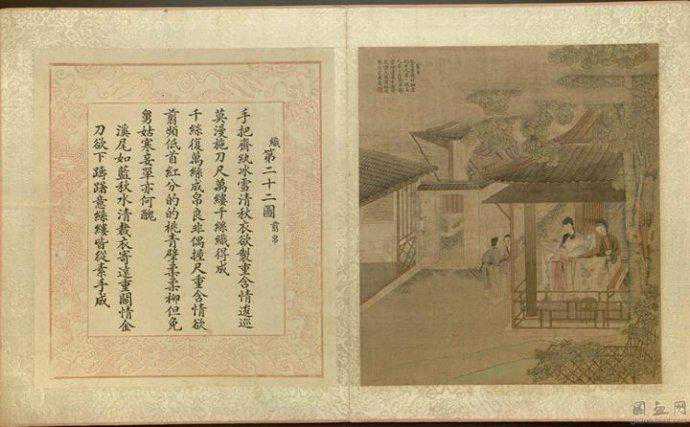 織第二十二圖 剪帛
手把齊紈冰雪清秋衣欲製重含情逡巡
莫漫施刀尺萬縷千絲織得成
千絲復萬絲成帛良非偶尺重含情欲
剪頻低首紅分的的桃青擘柔柔柳但免
舅姑寒妾單亦何醜
溪尾如藍秋水清裁衣寄遠重關情金
刀欲下躊躇意絲縷皆從素手成